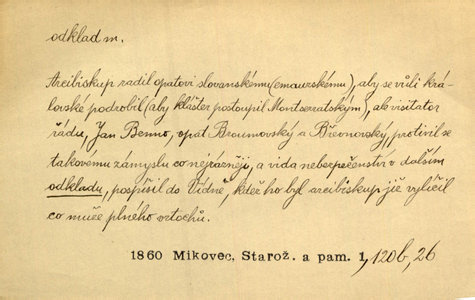 odklad m.
Arcibiskup radil opatovi slovanskému (emauzskému), aby se vůli krá-
lovské podrobil (aby klášter postoupil Montserratským), ale visitator
řádu, Jan Benno, opat Broumovský a Břevnovský, protivil se
takovému zámyslu co nejrázněji, a vida nebezpečenství v dalším
odkladu, pospíšil do Vídně, kdež ho byl arcibiskup již vylíčil
co muže plného vrtochů.
1860 Mikovec, Starož. a pam. 1, 120b, 26